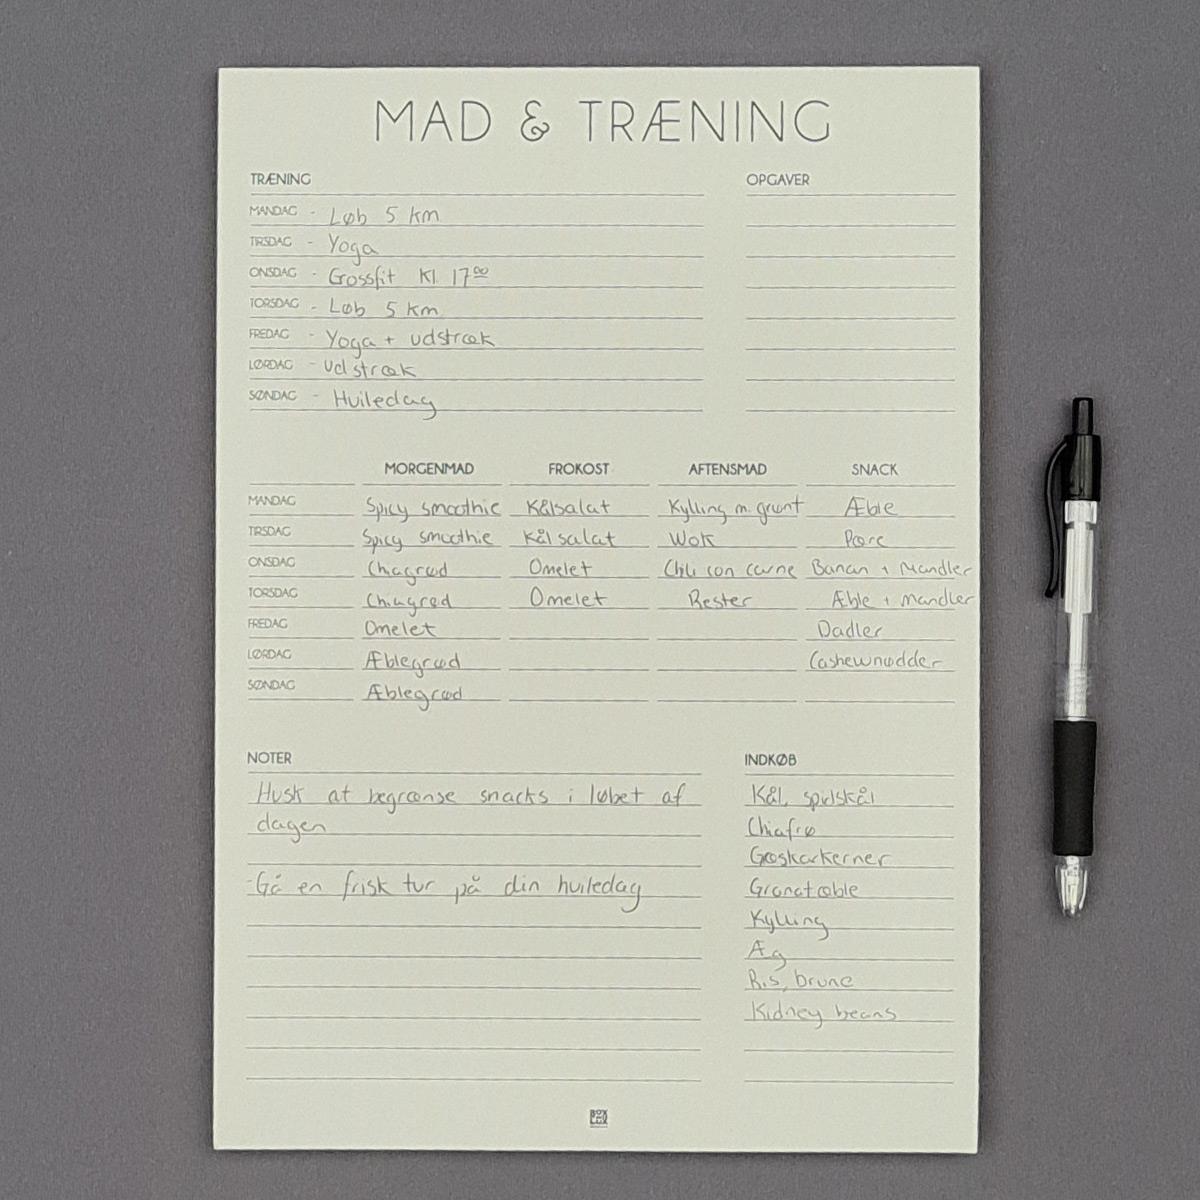 MAD & TRÆNING
TRÆNING
MANDAG - Løb 5 km
TIRSDAG - Yoga
ONSDAG - Crossfit Kl. 17⁰⁰
TORSDAG - Løb 5 km
FREDAG - Yoga + udstræk
LØRDAG - udstræk
SØNDAG - Hviledag
OPGAVER
MORGENMAD FROKOST AFTENSMAD SNACK
MANDAG Spicy smoothie Kålsalat Kylling m. grønt Æble
TIRSDAG Spicy smoothie Kålsalat Wok Pære
ONSDAG Chiagrød Omelet Chili con carne Banan + Mandler
TORSDAG Chiagrød Omelet Rester Æble + mandler
FREDAG Omelet Dadler
LØRDAG Æblegrød Cashewnødder
SØNDAG Æblegrød
NOTER
Husk at begrænse snacks i løbet af
dagen
- Gå en frisk tur på din hviledag
INDKØB
Kål, spidskål
Chiafrø
Græskarkerner
Granatæble
Kylling
Æg
Ris, brune
Kidney beans